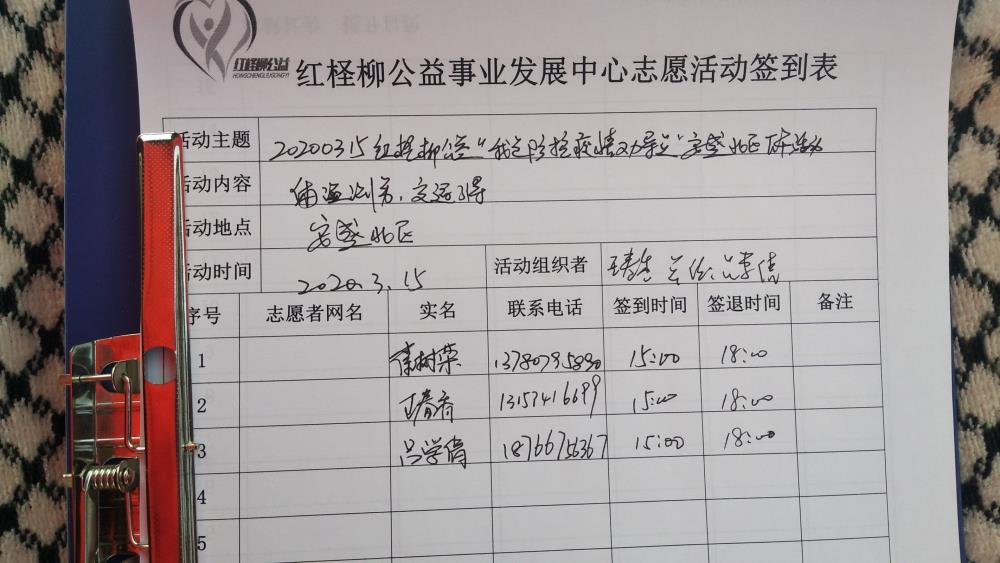 红柽柳公益
HONGCHENGLIUGONGYI
红柽柳公益事业发展中心志愿活动签到表
活动主题 20200315红柽柳公益“我是防控疫情劝导员”安盛北区活动
活动内容 体温测量、
活动地点 安盛北区
活动时间 2020.3.15 活动组织者
序号 志愿者网名 实名 联系电话 签到时间 签退时间 备注
1 徐树荣 13780795890 15:00 18:00
2 王春香 13153416699 15:00 18:00
3 吕学倩 18766756367 15:00 18:00
4
5